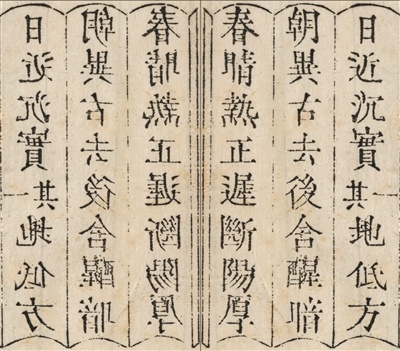 日近沉實其一地低方
朝異古去後舍醒暗
春晴熱正遲斷陽厚
春晴熱正遲斷陽厚
朝異古去後舍醒暗
日近沉實其一地低方